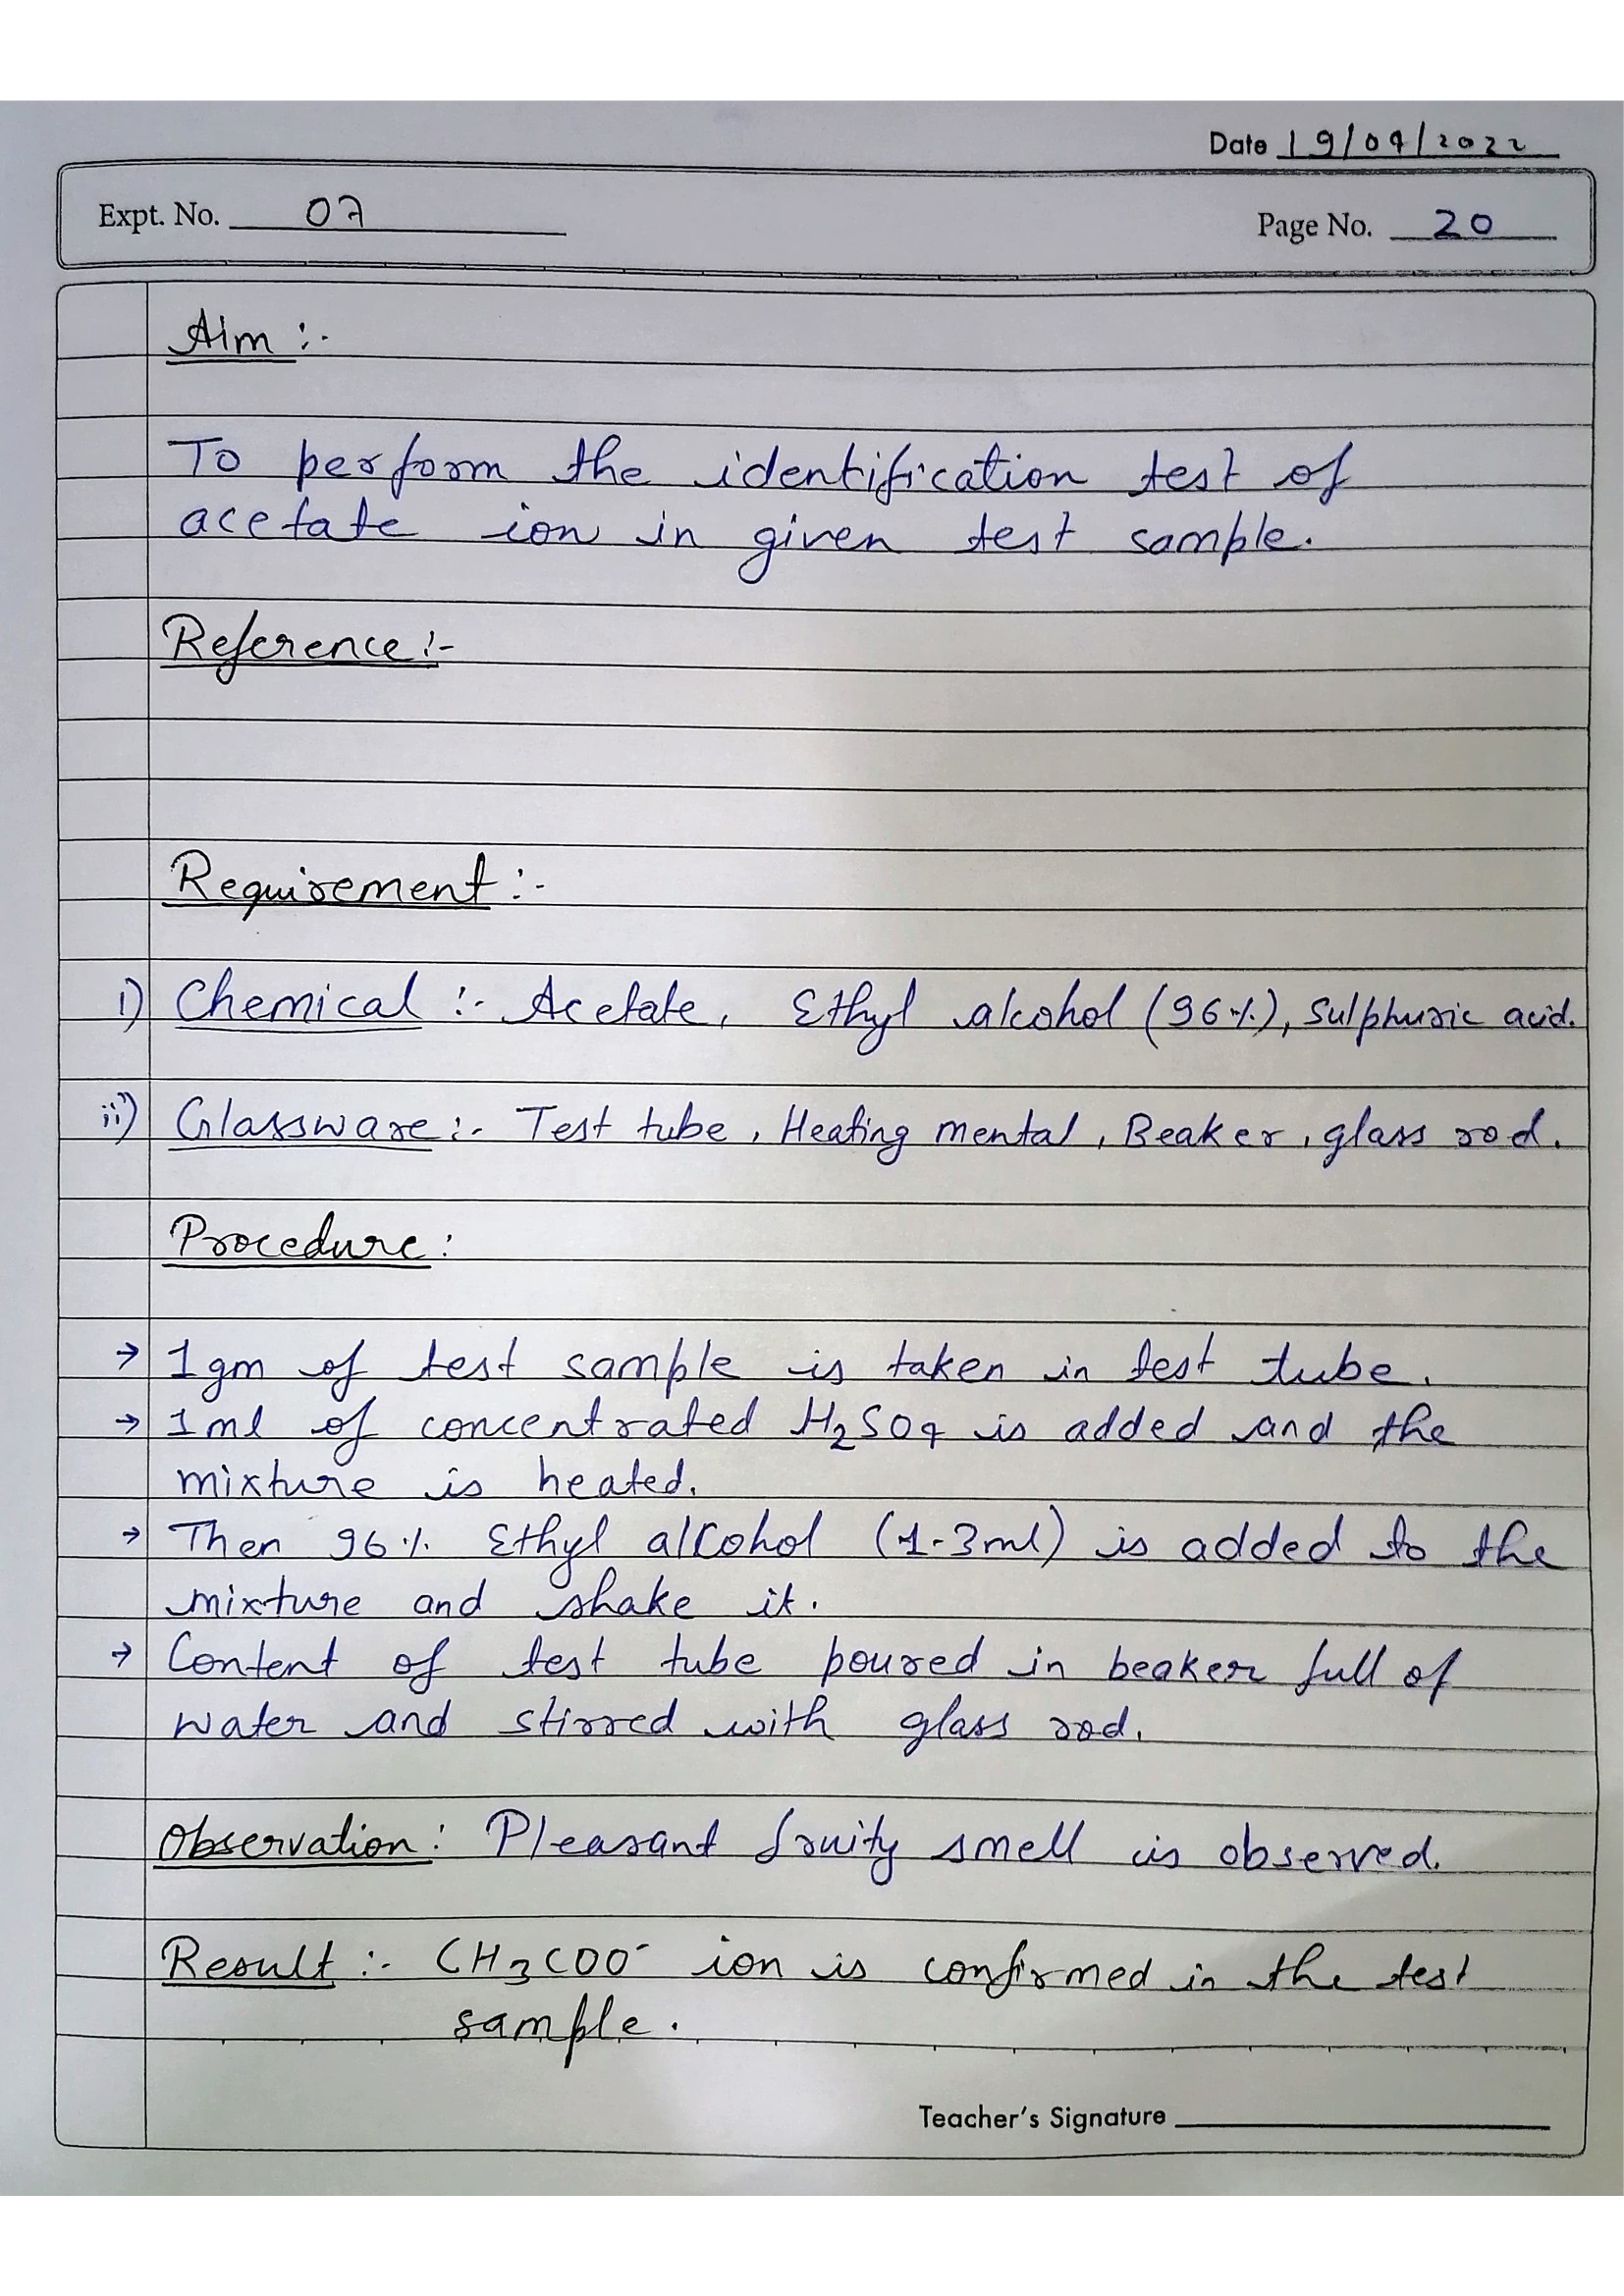 Date 19/04/2022
Expt. No. 07
Page No. 20
Aim :-
To perform the identification test of
acetate ion in given test sample.
Reference :-
Requirement :-
i) Chemical :- Acetate, Ethyl alcohol (96%), Sulphuric acid.
ii) Glassware :- Test tube, Heating mental, Beaker, glass rod.
Procedure :
→ 1gm of test sample is taken in test tube.
→ 1ml of concentrated H₂SO₄ is added and the
mixture is heated.
→ Then 96% Ethyl alcohol (1-3ml) is added to the
mixture and shake it.
→ Content of test tube poured in beaker full of
water and stirred with glass rod.
Observation : Pleasant fruity smell is observed.
Result :- CH₃COO⁻ ion is confirmed in the test
sample.
Teacher's Signature